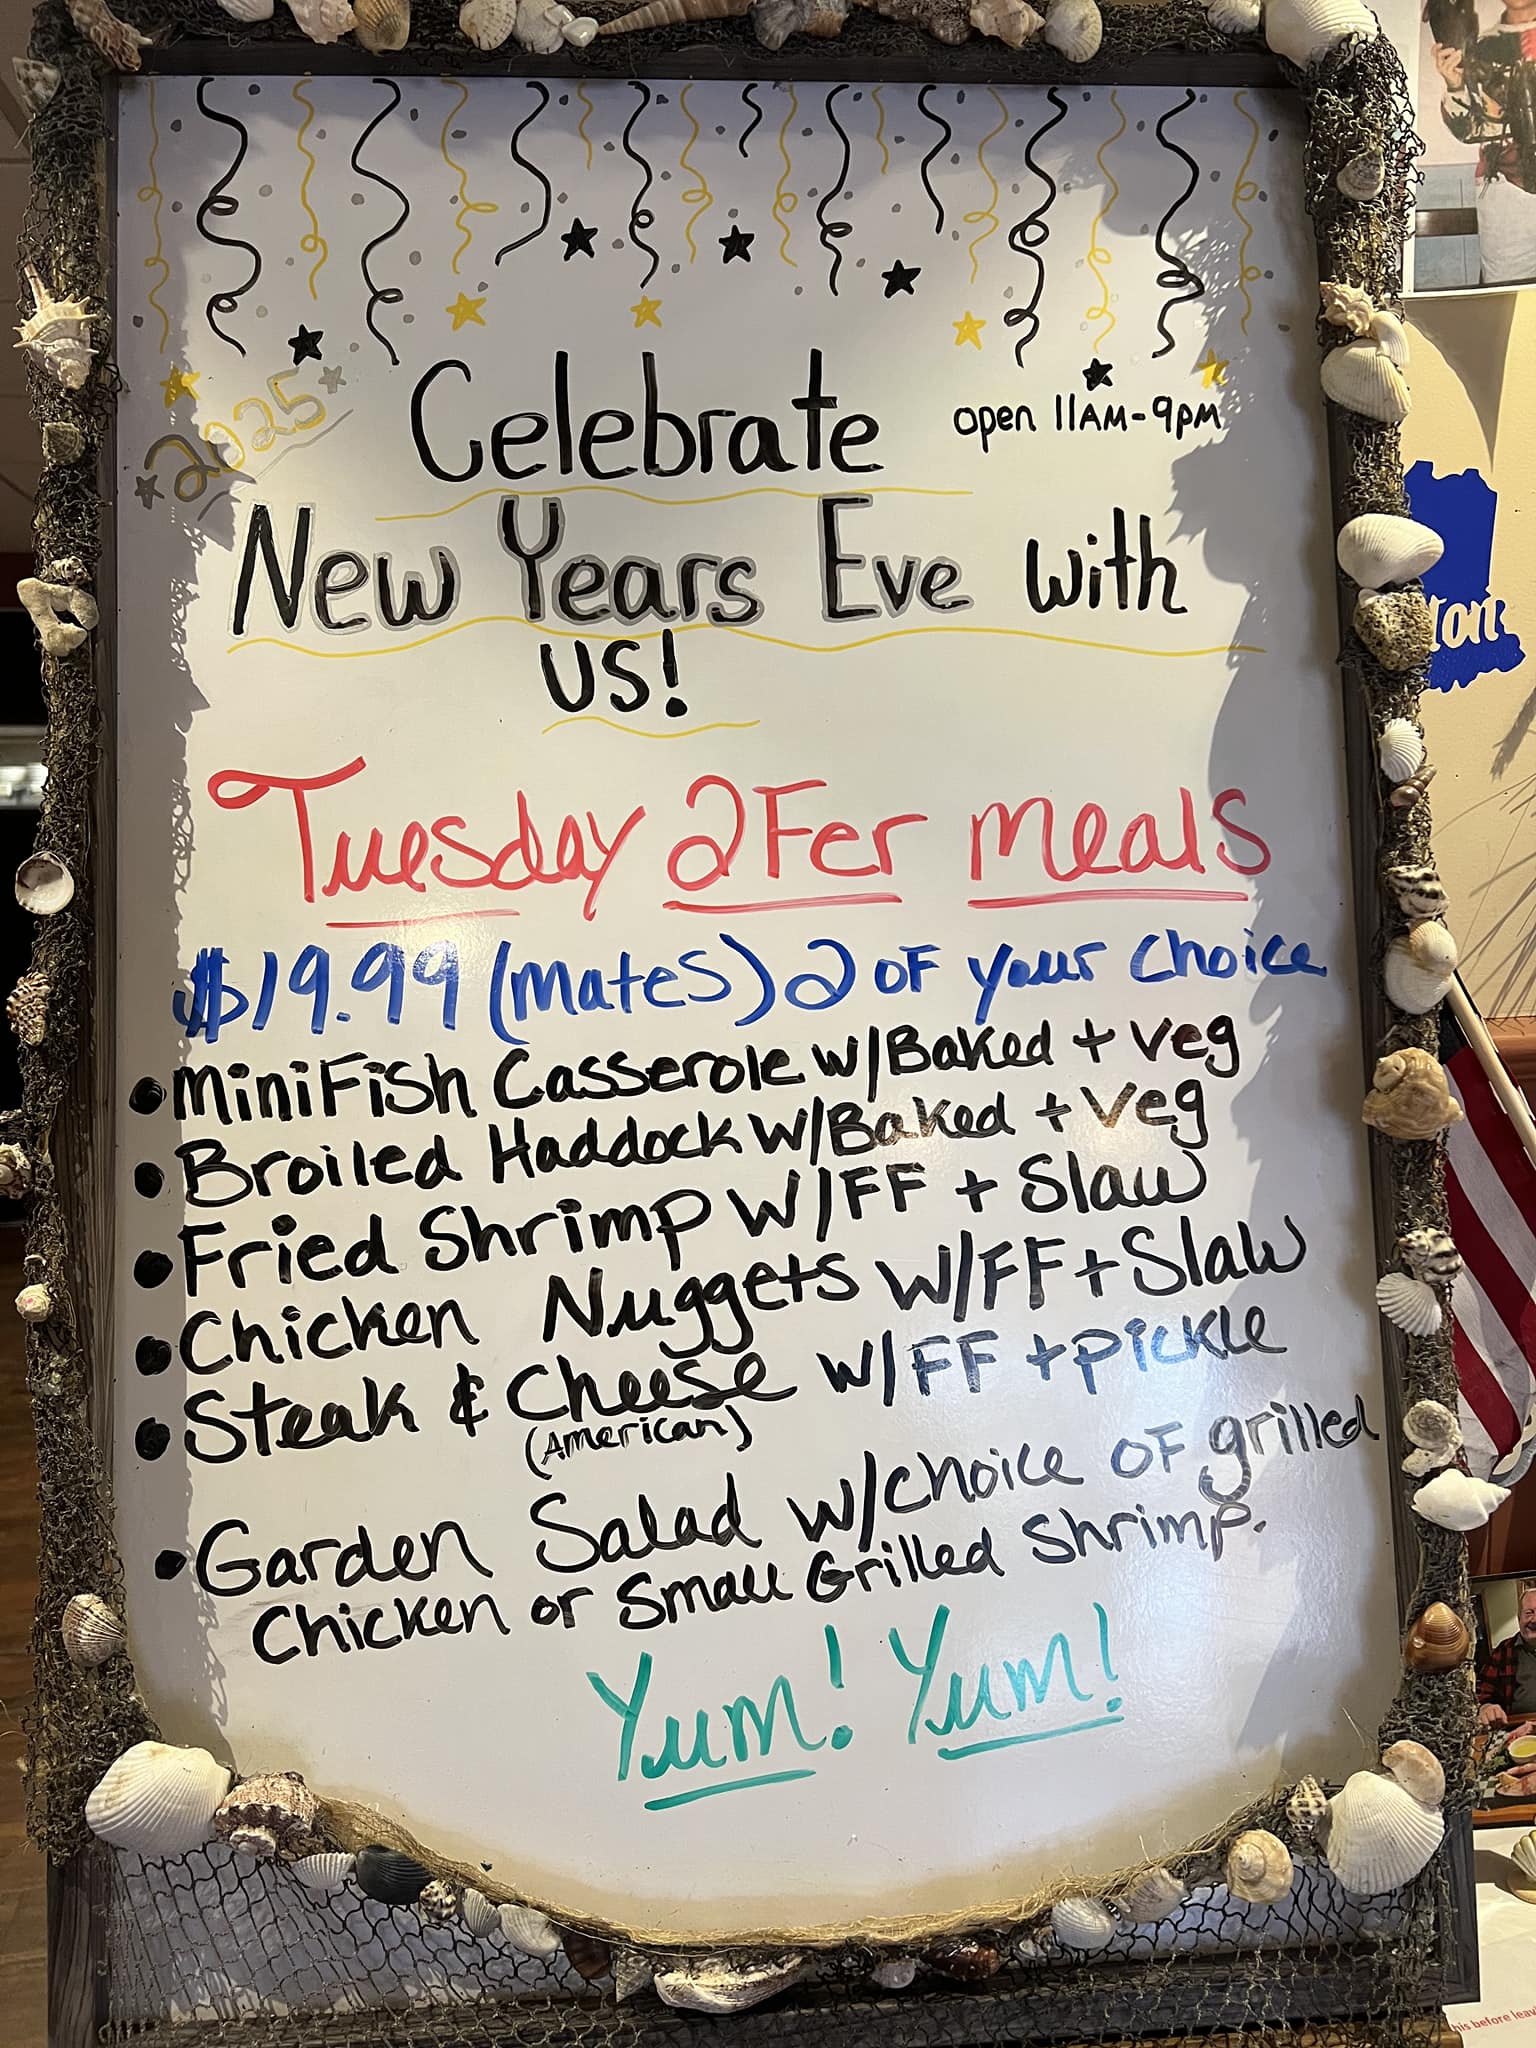 2025
Celebrate
open 11AM-9PM
New Years Eve with
us!
Tuesday 2Fer meals
$19.99 (mates) 2 OF your choice
• MiniFish Casserole w/Baked + veg
• Broiled Haddock w/Baked + Veg
• Fried Shrimp w/FF + Slaw
• Chicken Nuggets w/FF + Slaw
• Steak & Cheese w/FF + pickle
(American)
• Garden Salad w/choice OF grilled
Chicken or Small Grilled Shrimp.
Yum! Yum!
his before leav